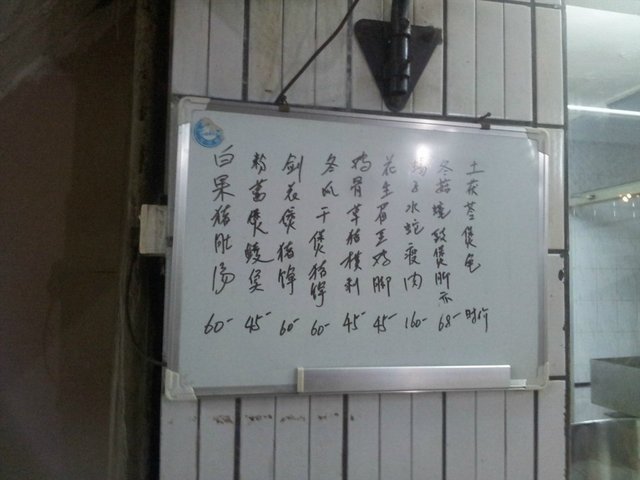 土茯苓煲龟 时价
冬菇 煲 68-
水蛇瘦肉 160-
花生眉豆鸡脚 45-
鸡骨草猪横利 45-
冬瓜干煲猪 60-
剑花煲猪 60-
粉葛煲鲮鱼 45-
白果猪肚汤 60-